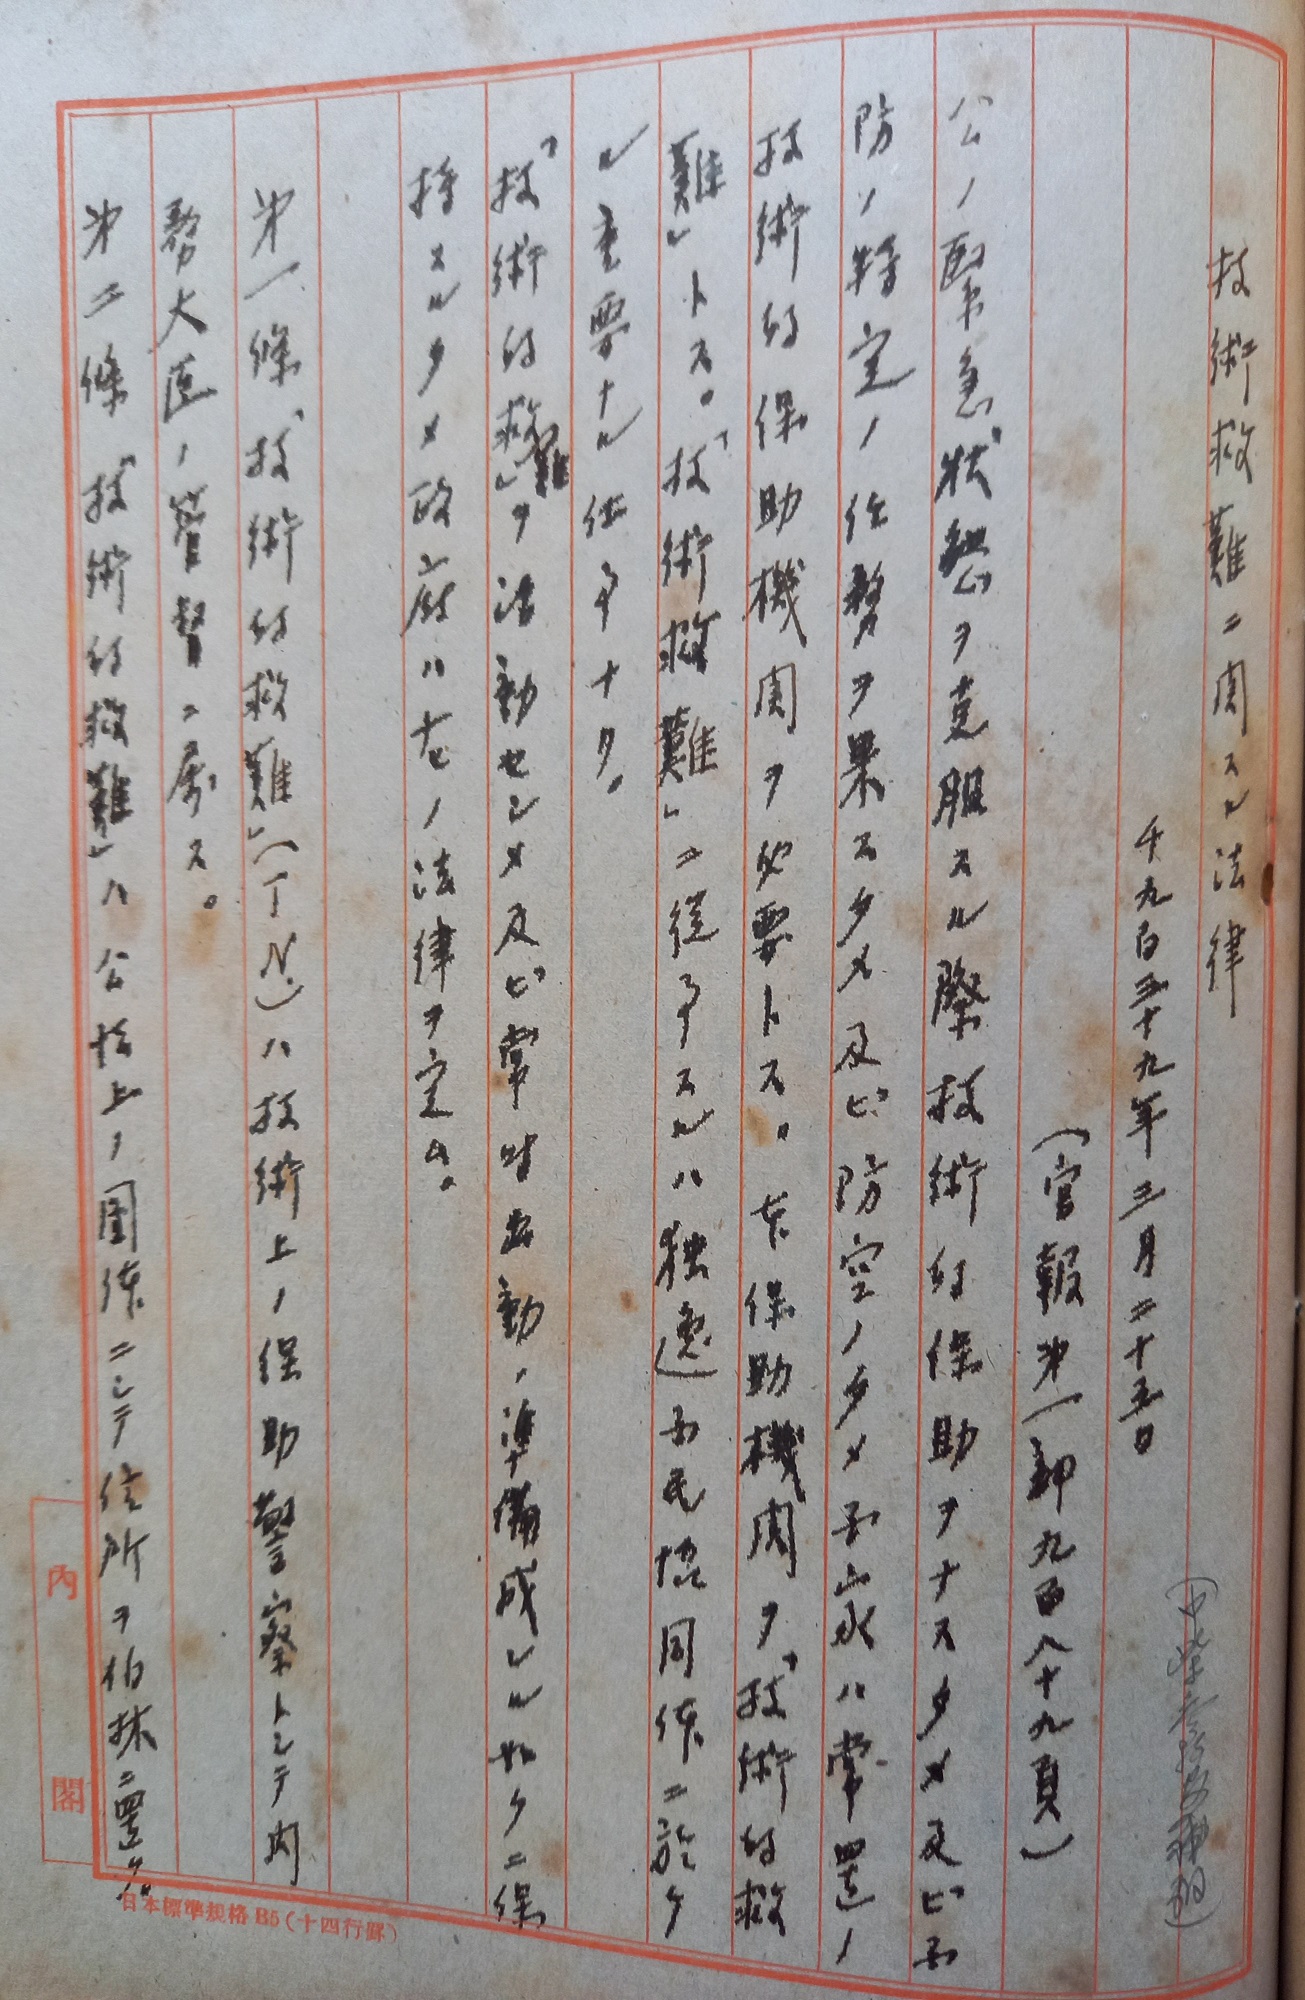 技術救難ニ関スル法律
千九百三十九年三月二十五日
（官報第一部九百八十九頁）
公ノ緊急状態ヲ克服スル際技術的保助ヲナスタメ及ビ国
防ノ特定ノ任務ヲ果スタメ及ビ防空ノタメ国家ハ常置ノ
技術的保助機関ヲ必要トス。本保助機関ヲ「技術的救
難」トス。「技術救難」ニ従事スルハ独逸国民協同体ニ於ケ
ル重要ナル仕事ナリ。
「技術的救難」ヲ活動セシメ及ビ常時出動ノ準備成レル如クニ保
持スルタメ政府ハ左ノ法律ヲ定ム。
第一條「技術的救難」（TN）ハ技術上ノ保助警察トシテ内
務大臣ノ管督ニ属ス。
第二條「技術的救難」ハ公法上ノ團体ニシテ住所ヲ伯林ニ置ク。
内閣
日本標準規格B5（十四行罫）